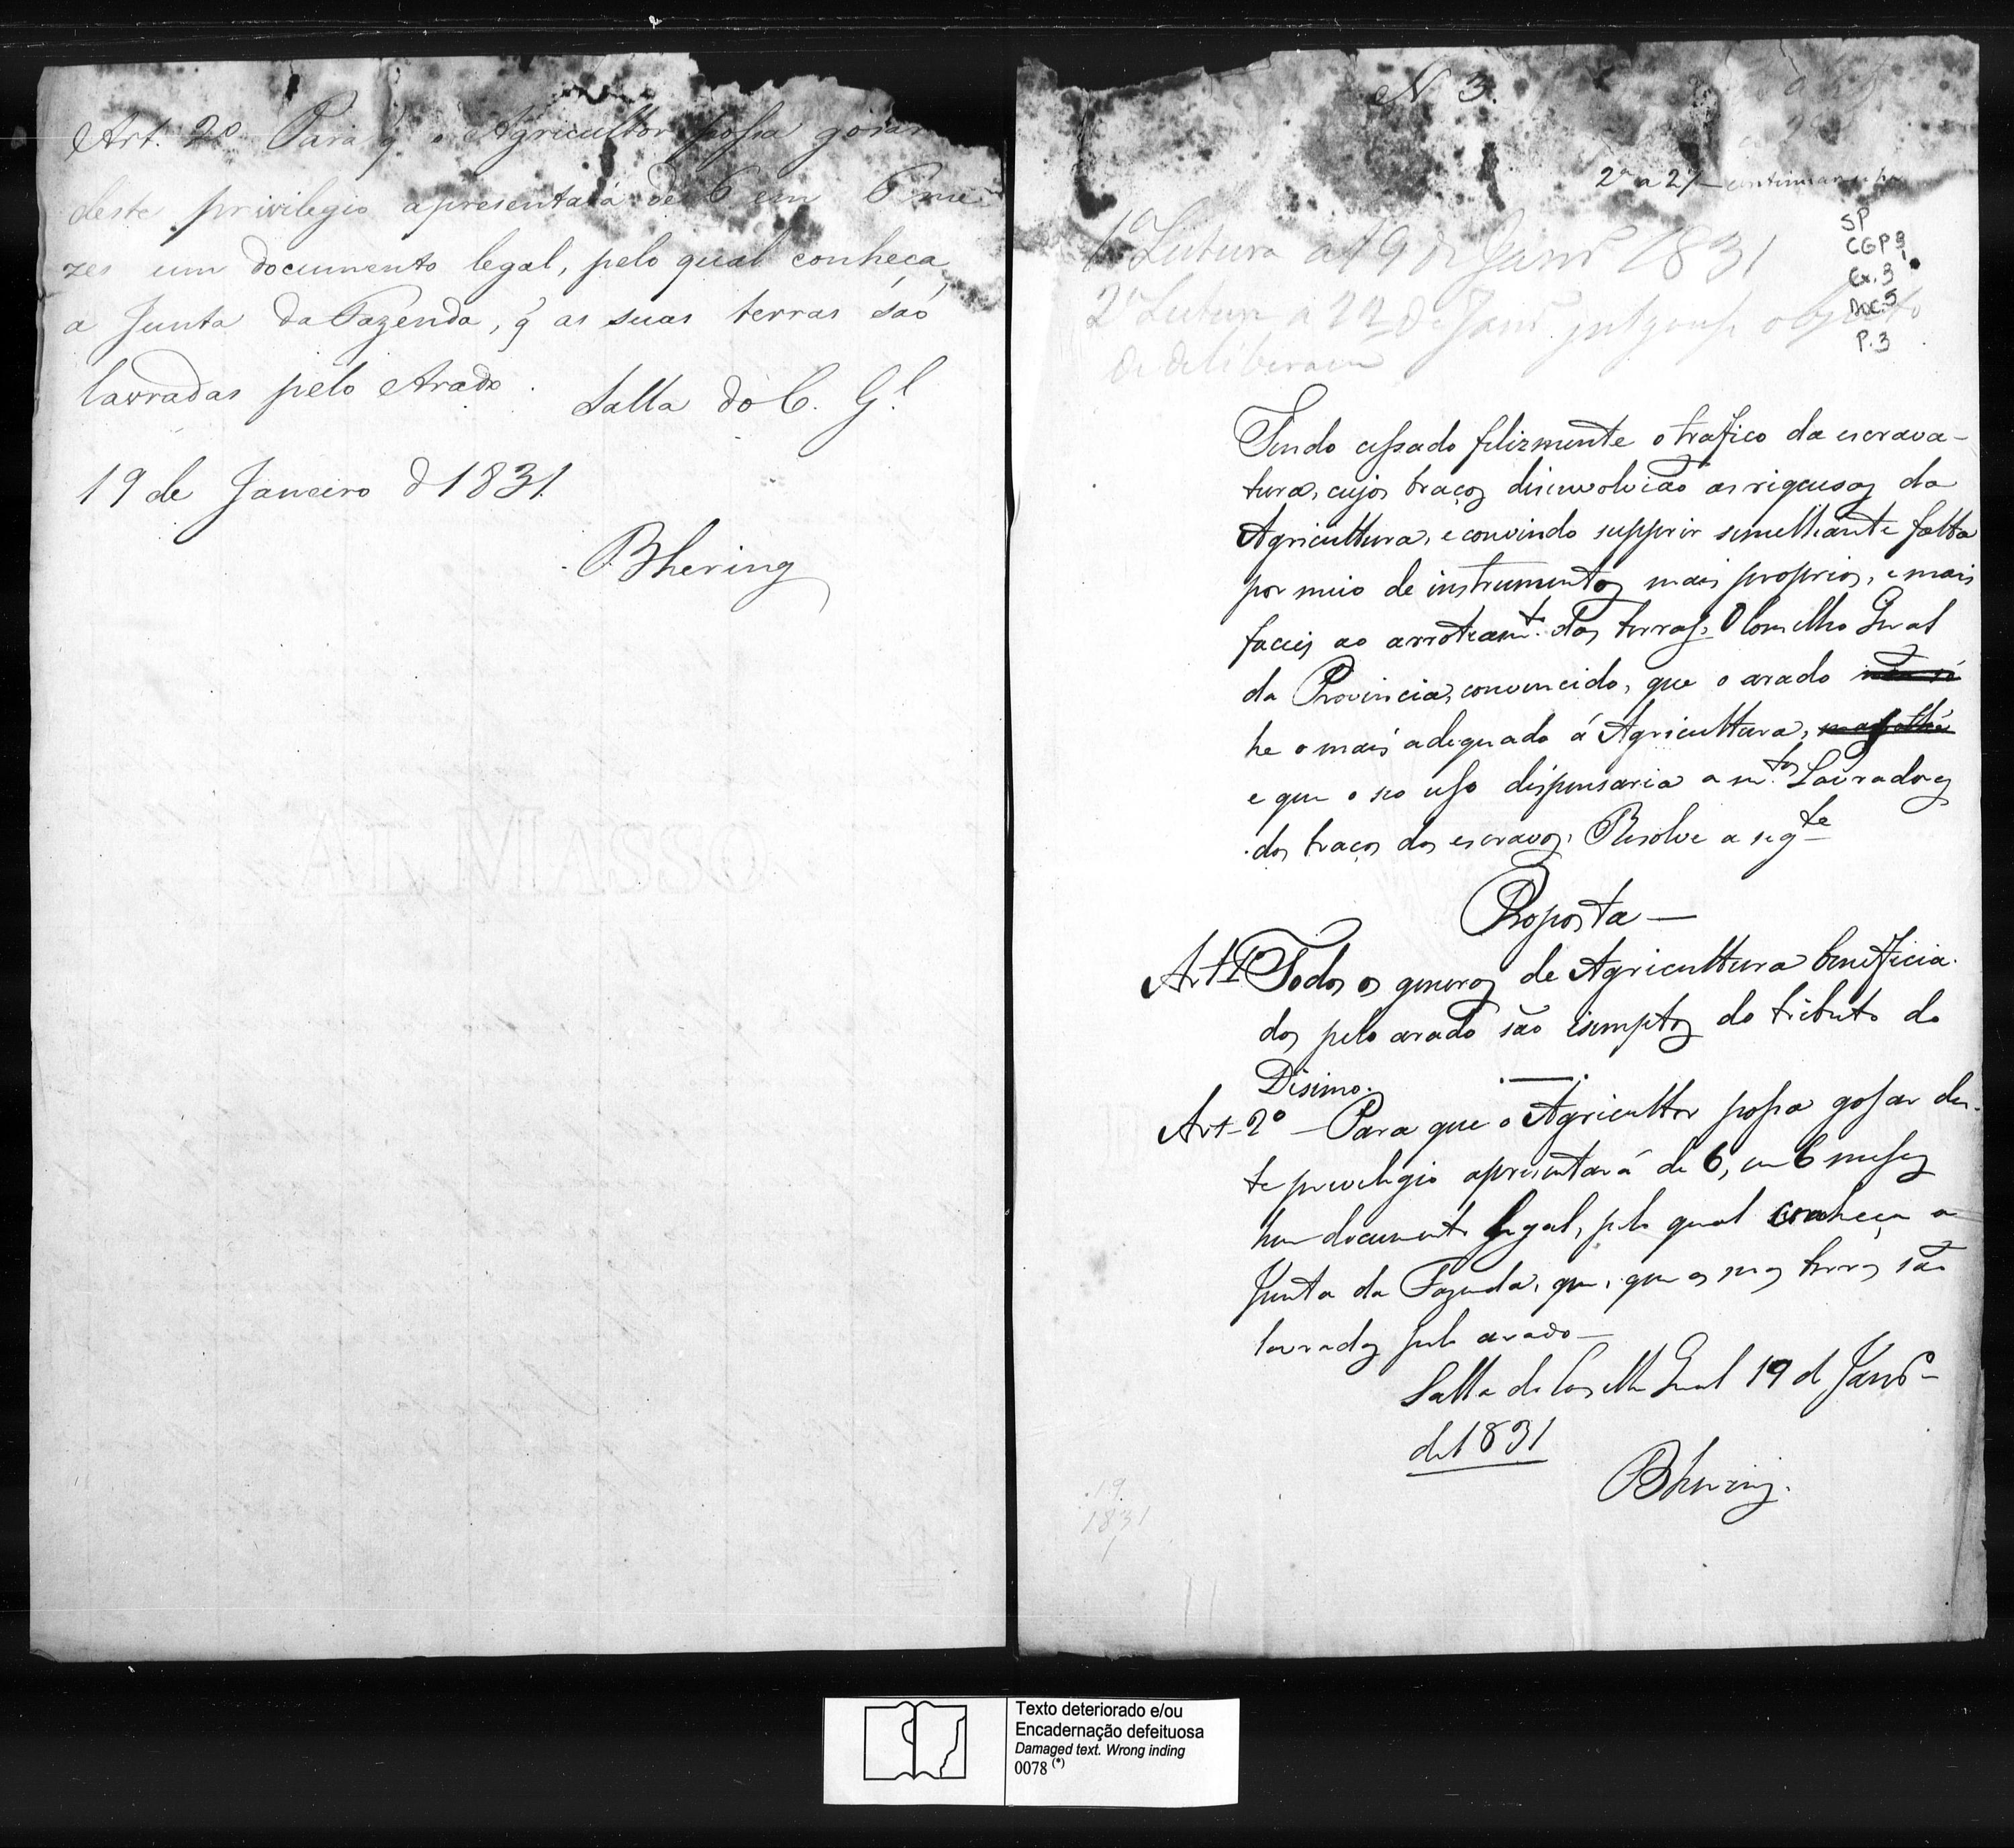 Art. 2º Para q̃ o Agricultor possa gosar
deste privilegio apresentará de 6 em 6 me
zes um documento legal, pelo qual conheça
a Junta da Fazenda, q̃ as suas terras são
lavradas pelo Arado.
Salla do C. G.l
19 de Janeiro d 1831.
Bhering
N 3.
2ª a 27
SP
CGP 3.1
Cx. 3
Doc. 5
P. 3
1ª Leitura a 19 de Janrº 1831
2ª Leitura a 22 de Janrº julgouse objecto
de deliberação
Tendo cessado felizmente o trafico da escrava-
tura, cujos braços disinvolvião as riquesas da
Agricultura, e convindo supprir similhante falta
por meio de instrumentos mais proprios, e mais
faceis ao arroteamt.º das terras, O Conselho Geral
da Provincia, convencido, que o arado não só
he o mais adequado á Agricultura, mas
e que o seo uso dispensaria a m.tos Lavradores
dos braços dos escravos, Resolve a segte
Proposta —
Art 1º Todos os generos de Agricultura beneficia-
dos pelo arado são isemptos do tributo do
Disimo.
Art- 2º — Para que o Agricultor possa gosar des-
te previlegio apresentará de 6, em 6 meses
hum documento legal, pelo qual conheça a
Junta da Fazenda, que, que as suas terras são
lavradas pelo arado —
Salla do Conselho Geral 19 d Janrº
de 1831
Bhering.
19
1831
Texto deteriorado e/ou
Encadernação defeituosa
Damaged text. Wrong inding
0078 (*)